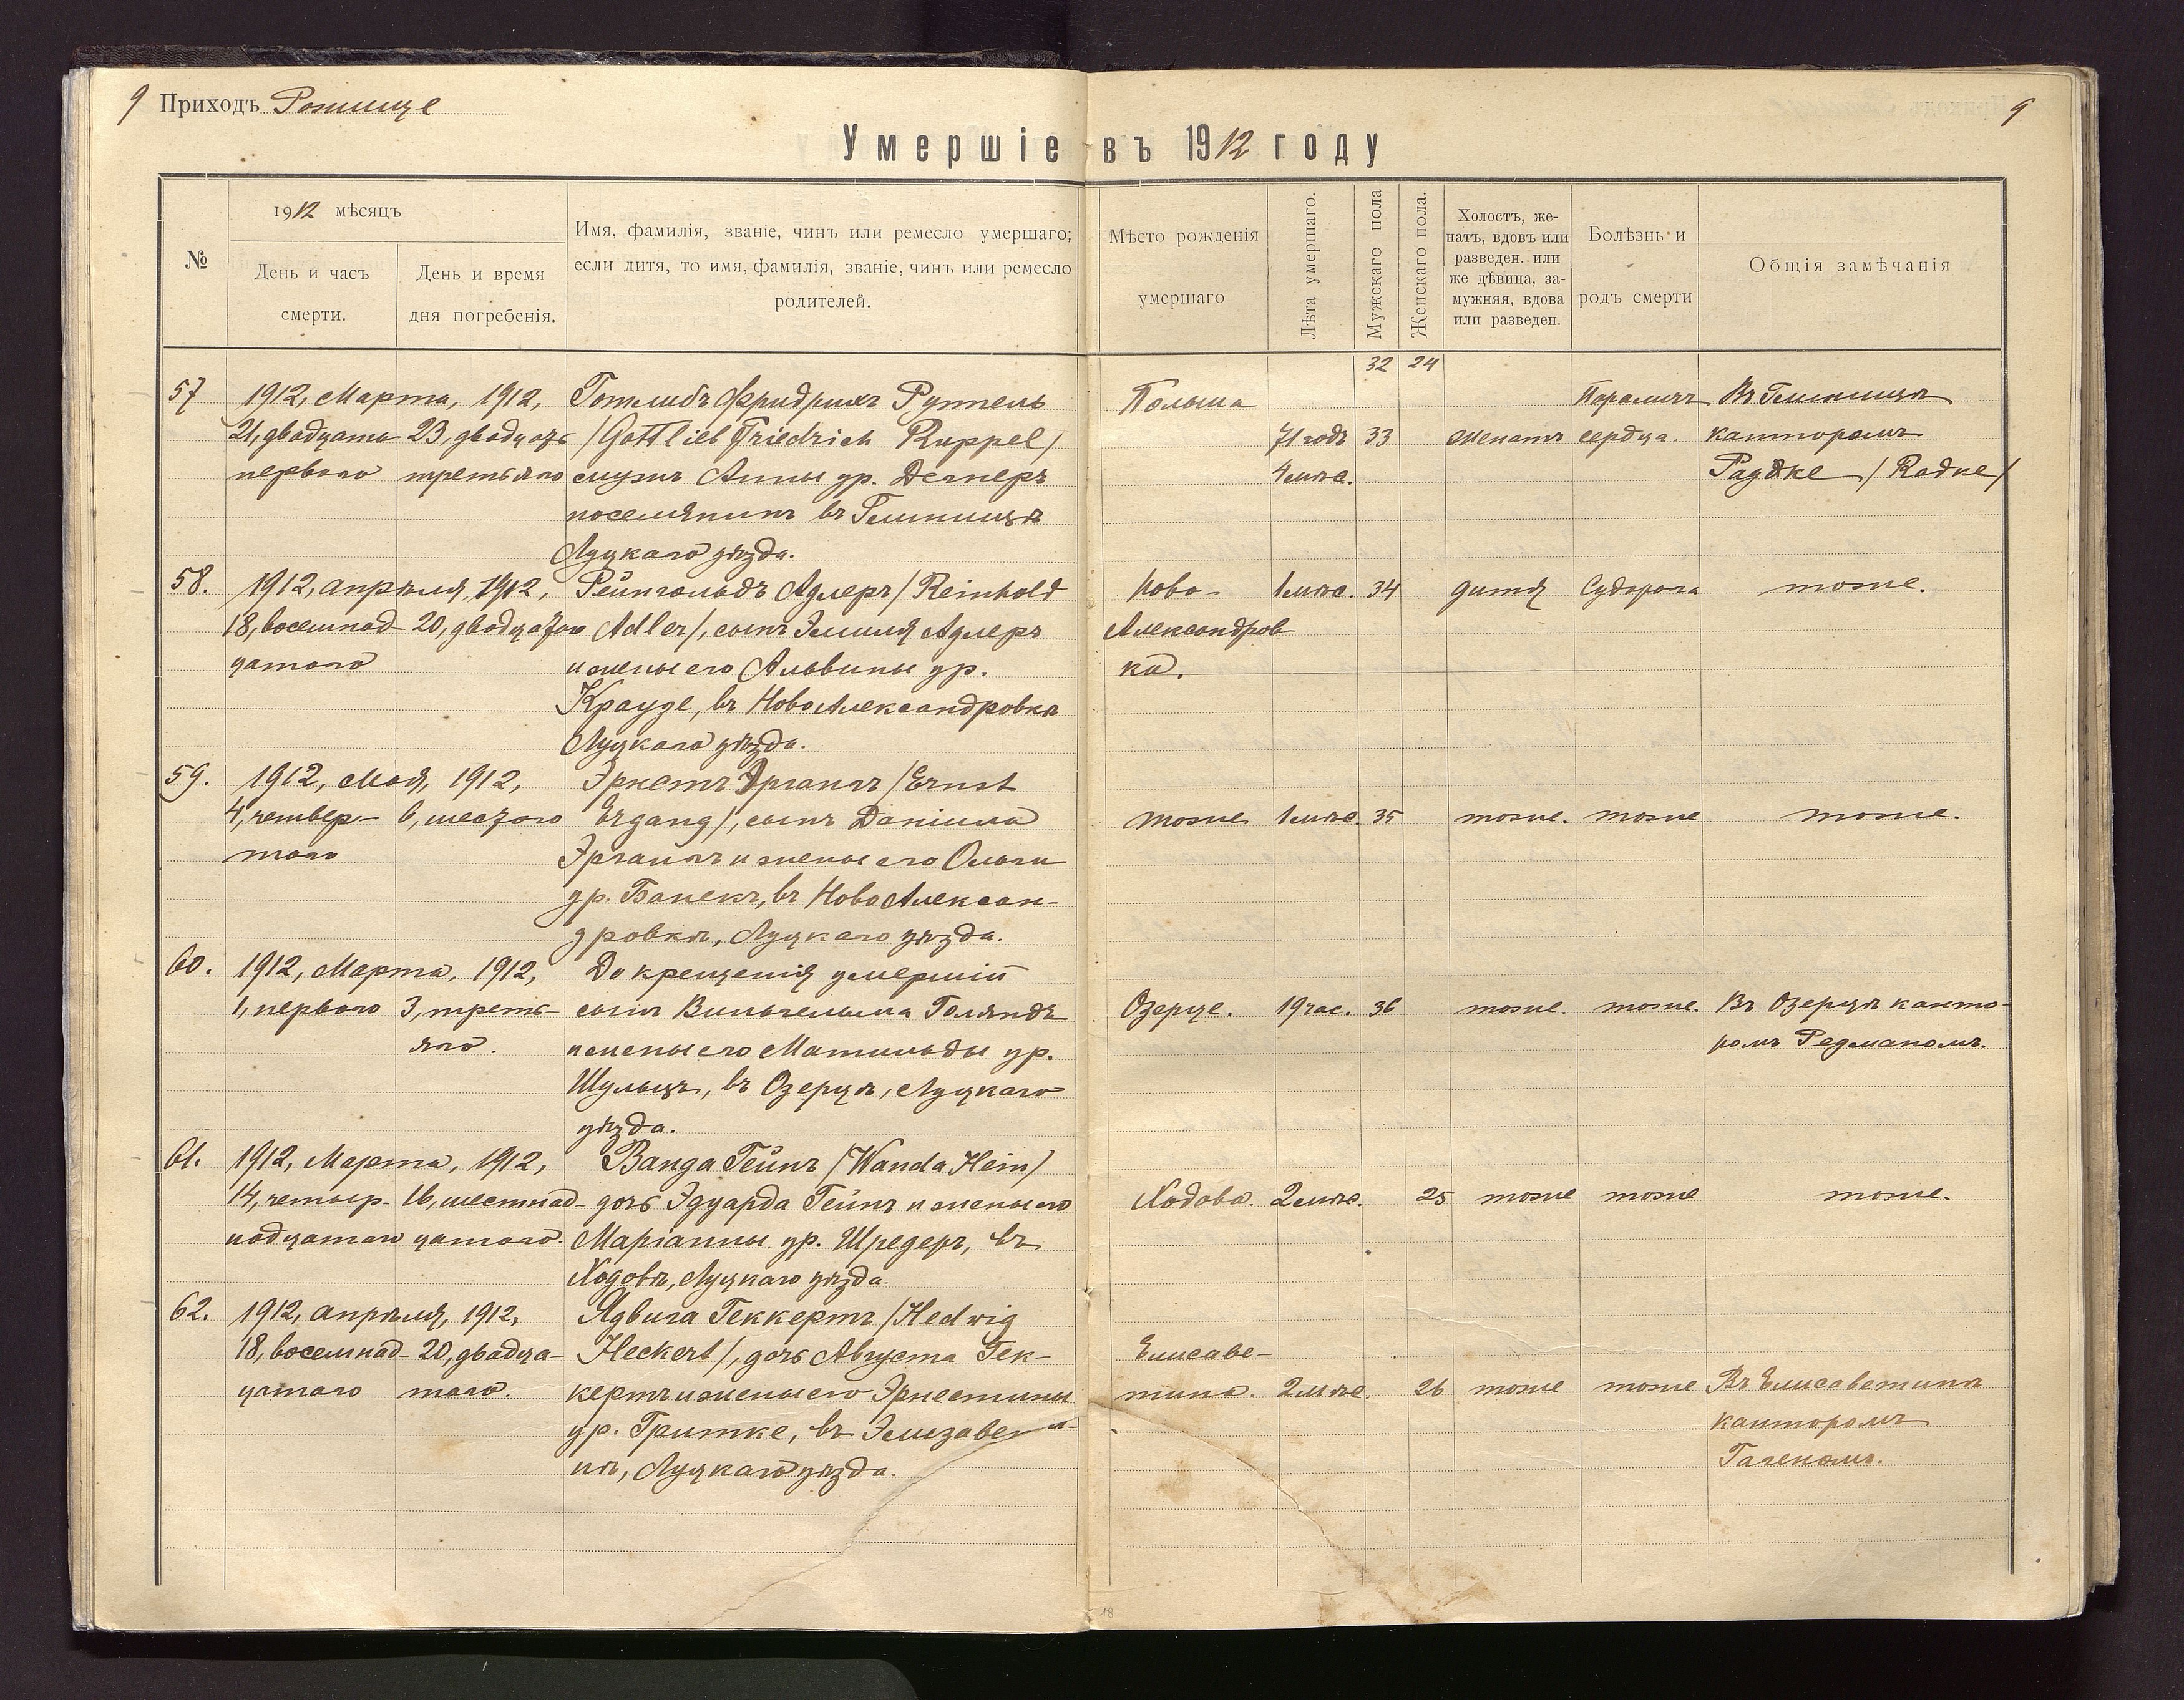 9 Приходъ Рожище
9
Умершіе въ 1912 году
№
1912 мѣсяцъ
День и часъ
смерти.
День и время
дня погребенія.
Имя, фамилія, званіе, чинъ или ремесло умершаго;
если дитя, то имя, фамилія, званіе, чинъ или ремесло
родителей.
Мѣсто рожденія
умершаго
Лѣта умершаго.
Мужскаго пола
Женскаго пола.
Холостъ, же-
натъ, вдовъ или
разведен. или
же дѣвица, за-
мужняя, вдова
или разведен.
Болѣзнь и
родъ смерти
Общія замѣчанія
32 24
57
1912, Марта, 1912,
21, двадцать 23, двадцать
перваго третьяго
Готлибъ Фридрихъ Руппель
/Gottlieb Friedrich Ruppel/
мужъ Анны ур.
поселянинъ въ
Луцкаго уѣзда.
Польша
71 годъ
4 мѣс.
33
женатъ
Параличъ
сердца.
Въ
канторомъ
Радке /Radke/
58.
1912, апрѣля, 1912,
18, восемнад- 20, двадцатаго
цатаго
Рейнгольдъ Адлеръ /Reinhold
Adler/, сынъ Эмиля Адлеръ
и жены его Альвины ур.
Краузе, въ НовоАлександровкѣ
Луцкаго уѣзда.
Ново-
Александров
ка.
1 мѣс.
34
дитя
Судорога
тоже.
59.
1912, Мая, 1912,
4, четвер- 6, шестого
таго
Эрнстъ Эргангъ /Ernst
Ergang/, сынъ Даніила
Эргангъ и жены его Ольги
ур. Банекъ, въ НовоАлексан-
дровкѣ, Луцкаго уѣзда.
тоже
1 мѣс.
35
тоже.
тоже
тоже.
60.
1912, Марта, 1912,
1, перваго 3, треть-
яго.
До крещенія умершій
сынъ Вильгельма Голяндъ
и жены его Матильды ур.
Шульцъ, въ Озерцѣ, Луцкаго
уѣзда.
Озерце.
19 час.
36
тоже.
тоже.
Въ Озерцѣ канто-
ромъ Редманомъ.
61.
1912, Марта, 1912,
14, четыр- 16, шестнад-
надцатаго цатаго.
Ванда Гейнъ /Wanda Hein/
дочь Эдуарда Гейнъ и жены его
Маріанны ур. Шредеръ, въ
Ходовѣ, Луцкаго уѣзда.
Ходова.
2 мѣс.
25
тоже
тоже
тоже.
62.
1912, апрѣля, 1912,
18, восемнад- 20, двадца-
цатаго таго.
Ядвига Геккертъ /Hedwig
Heckert/, дочь Августа Гек-
кертъ и жены его Эрнестины
ур. Гритке, въ Элизавети-
нѣ, Луцкаго уѣзда.
Елисаве-
тина.
2 мѣс.
26
тоже
тоже
Въ Елисаветинѣ
канторомъ
18